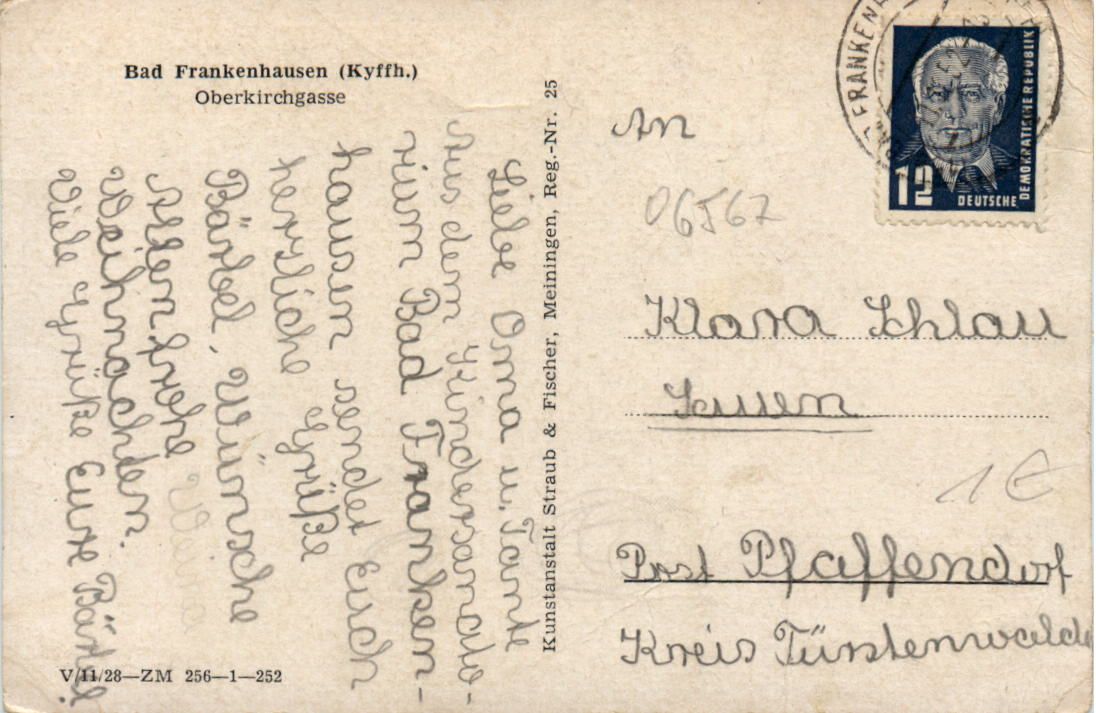 Bad Frankenhausen (Kyffh.)
Oberkirchgasse
Liebe Oma u. Tante
Aus dem Kindersanato-
rium Bad Franken-
hausen sendet Euch
herzliche Grüße
Bärbel. Wünsche
Allen frohe
Weihnachten.
Viele Grüße Eure Bärbel
V/11/28—ZM 256—1—252
Kunstanstalt Straub & Fischer, Meiningen, Reg.-Nr. 25
FRANKENH
12
DEUTSCHE
DEMOKRATISCHE REPUBLIK
An
06567
Klara Schlau
1 €
Post Pfaffendorf
Kreis Fürstenwalde